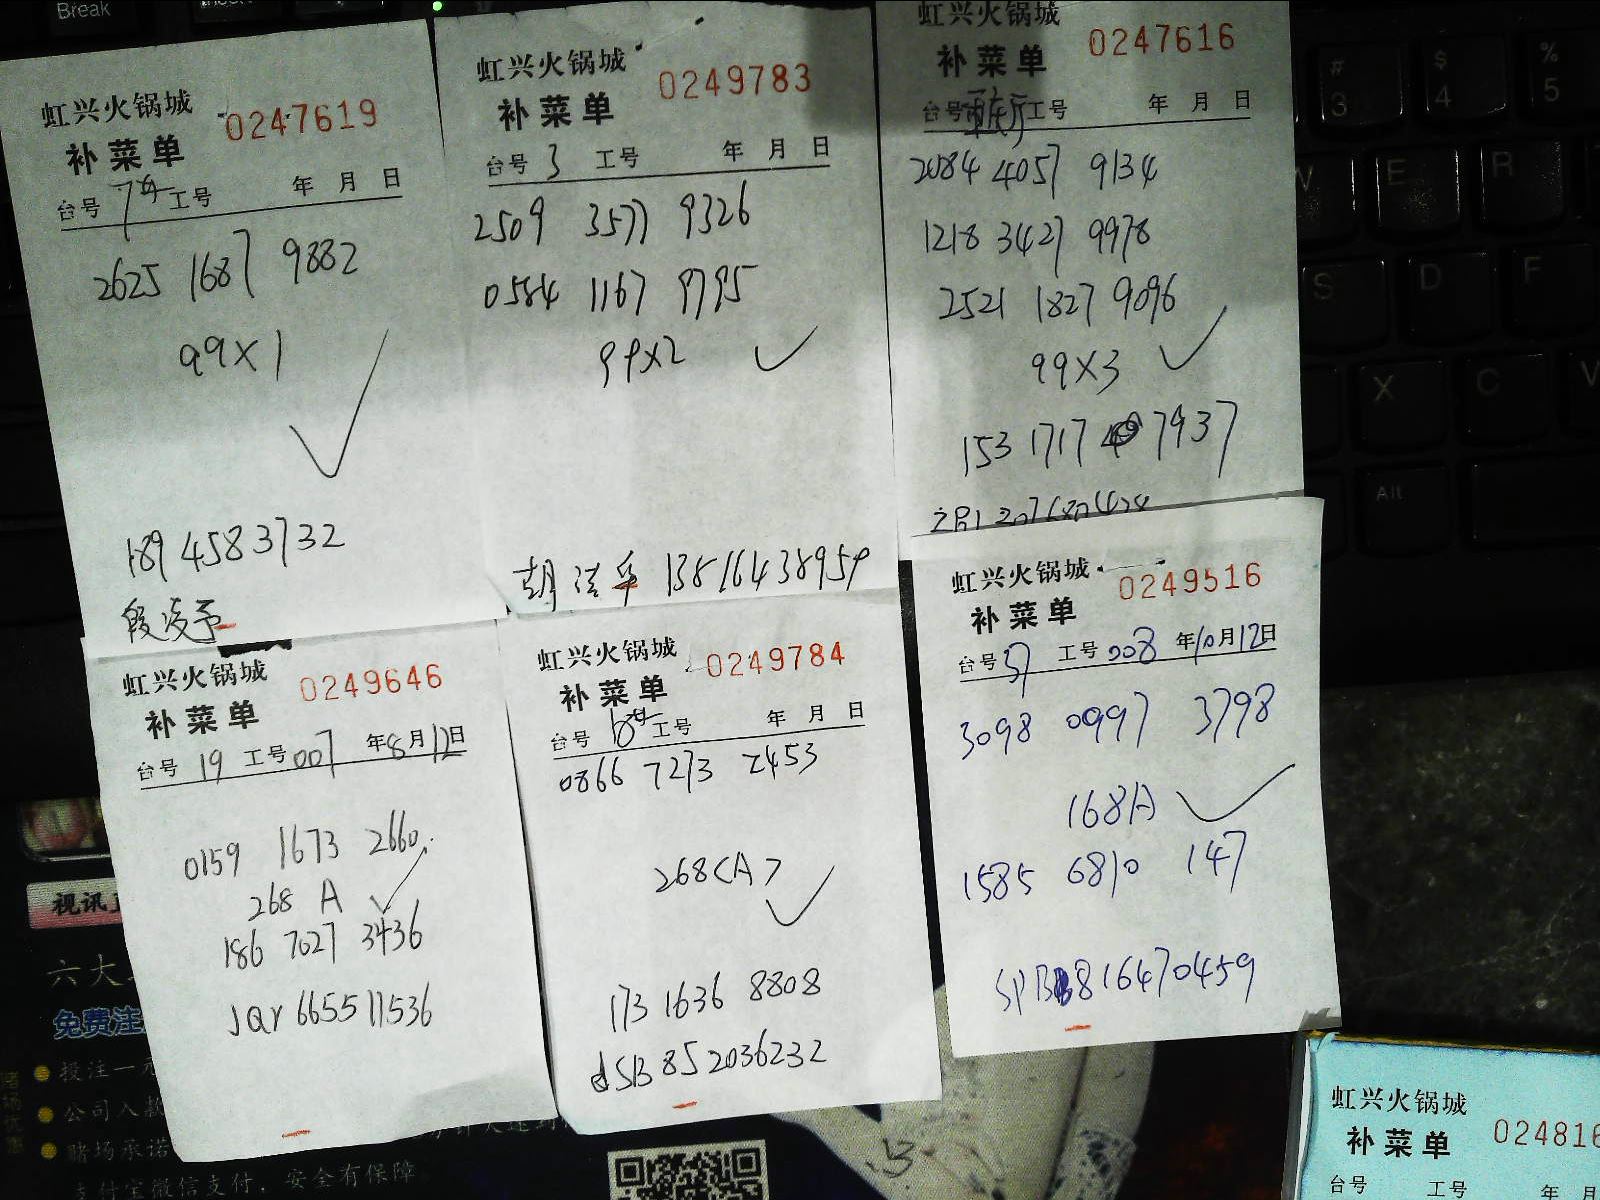 Break
虹兴火锅城
补菜单 0247619
台号 工号 年 月 日
2625 1687 9882
99X1
189 4583732
段凌予
虹兴火锅城
补菜单 0249783
台号 3 工号 年 月 日
2509 3577 9326
0584 1167 9795
99X2
13816438959
虹兴火锅城
补菜单 0247616
台号 工号 年 月 日
2084 4057 9134
1218 3427 9978
2521 1827 9096
99X3
153 1717 7937
虹兴火锅城
补菜单 0249646
台号 19 工号 007 年 8月12日
0159 1673 2660
268 A
186 7027 3436
JQY 665511536
虹兴火锅城
补菜单 0249784
台号 工号 年 月 日
0866 7273 2453
268<A>
173 1636 8808
dSB 852036232
虹兴火锅城
补菜单 0249516
台号 37 工号 008 年10月12日
3098 0997 3798
168A
1585 6810 147
SPB 816470459
虹兴火锅城
补菜单 024816
台号 工号 年 月
# 3
$ 4
% 5
W E R
S D F
X C V
Alt
视讯
六大
免费注
投注一元
公司入款
赌场承诺
支付宝微信支付，安全有保障